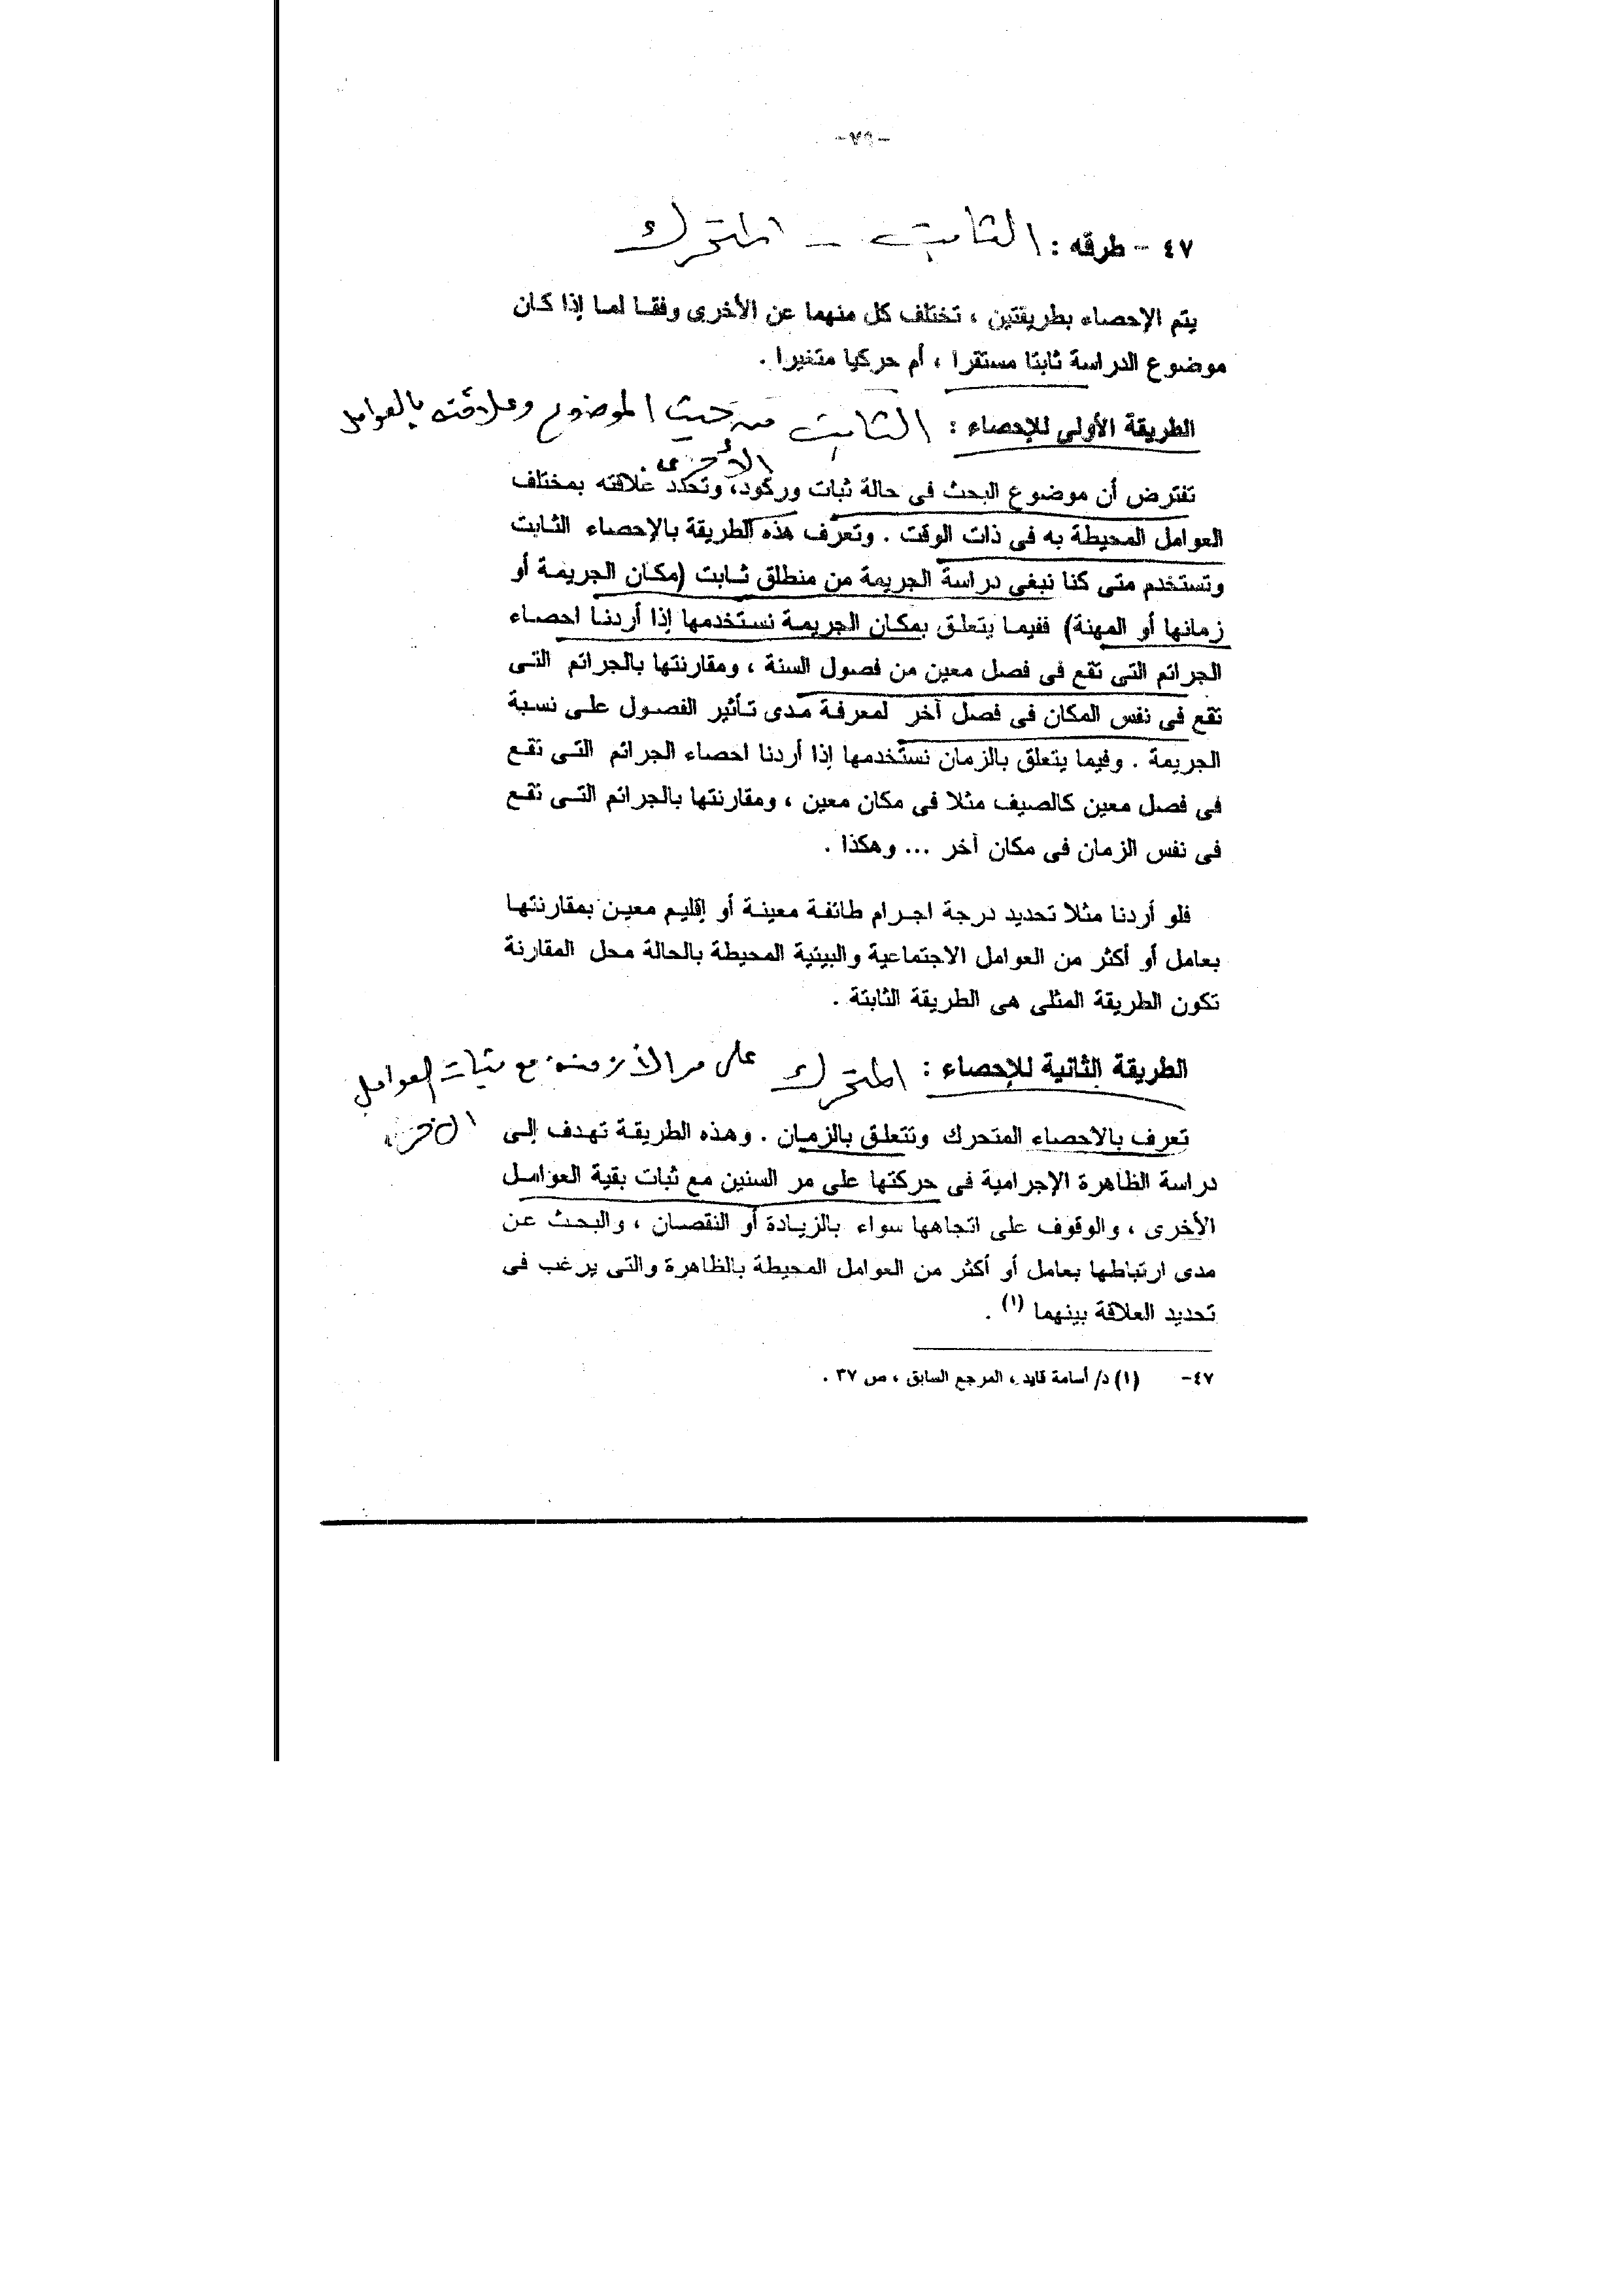 -٧٩-
٤٧ - طرقه : الثابت - المتحرك
يتم الإحصاء بطريقتين ، تختلف كل منهما عن الأخرى وفقا لما إذا كان
موضوع الدراسة ثابتا مستقرا ، أم حركيا متغيرا .
الطريقة الأولى للإحصاء : الثابت من حيث الموضوع وعلاقته بالعوامل
الأخرى .
تفترض أن موضوع البحث فى حالة ثبات وركود، وتحدد علاقته بمختلف
العوامل المحيطة به فى ذات الوقت . وتعرف هذه الطريقة بالإحصاء الثابت
وتستخدم متى كنا نبغى دراسة الجريمة من منطلق ثابت (مكان الجريمة أو
زمانها أو المهنة) ففيما يتعلق بمكان الجريمة نستخدمها إذا أردنا احصاء
الجرائم التى تقع فى فصل معين من فصول السنة ، ومقارنتها بالجرائم التى
تقع فى نفس المكان فى فصل آخر لمعرفة مدى تأثير الفصول على نسبة
الجريمة . وفيما يتعلق بالزمان نستخدمها إذا أردنا احصاء الجرائم التى تقع
فى فصل معين كالصيف مثلا فى مكان معين ، ومقارنتها بالجرائم التى تقع
فى نفس الزمان فى مكان آخر ... وهكذا .
فلو أردنا مثلا تحديد درجة اجرام طائفة معينة أو إقليم معين بمقارنتها
بعامل أو أكثر من العوامل الاجتماعية والبيئية المحيطة بالحالة محل المقارنة
تكون الطريقة المثلى هى الطريقة الثابتة .
الطريقة الثانية للإحصاء : المتحرك على مر الأزمنة مع ثبات العوامل
الأخرى
تعرف بالاحصاء المتحرك وتتعلق بالزمان . وهذه الطريقة تهدف إلى
دراسة الظاهرة الإجرامية فى حركتها على مر السنين مع ثبات بقية العوامل
الأخرى ، والوقوف على اتجاهها سواء بالزيادة أو النقصان ، والبحث عن
مدى ارتباطها بعامل أو أكثر من العوامل المحيطة بالظاهرة والتى يرغب فى
تحديد العلاقة بينهما (١) .
٤٧- (١) د/ أسامة قايد ، المرجع السابق ، ص ٣٧ .